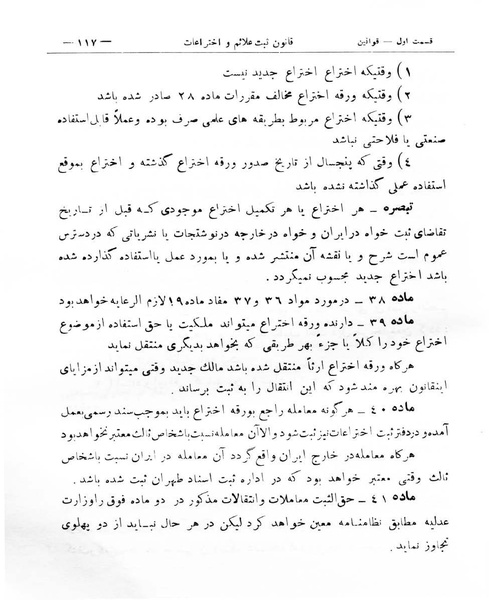 قسمت اول — قوانین
قانون ثبت علائم و اختراعات
— ۱۱۷ —
۱) وقتیکه اختراع اختراع جدید نیست
۲) وقتیکه ورقه اختراع مخالف مقررات ماده ۲۸ صادر شده باشد
۳) وقتیکه اختراع مربوط بطریقه های علمی صرف بوده وعملاً قابل استفاده
صنعتی یا فلاحتی نباشد
٤) وقتی که پنجسال از تاریخ صدور ورقه اختراع گذشته و اختراع بموقع
استفاده عملی گذاشته نشده باشد
تبصره ـ هر اختراع یا هر تکمیل اختراع موجودی که قبل از تاریخ
تقاضای ثبت خواه درایران و خواه درخارجه درنوشتجات یا نشریاتی که دردسترس
عموم است شرح و یا نقشه آن منتشر شده و یا بمورد عمل یااستفاده گذارده شده
باشد اختراع جدید محسوب نمیگردد.
ماده ۳۸ ـ درمورد مواد ۳۶ و ۳۷ مفاد ماده ۱۹ لازم الرعایه خواهد بود
ماده ۳۹ ـ دارنده ورقه اختراع میتواند ملکیت یا حق استفاده ازموضوع
اختراع خود را کلاً یا جزءً بهر طریقی که بخواهد بدیگری منتقل نماید
هرگاه ورقه اختراع ارثاً منتقل شده باشد مالك جدید وقتی میتواند ازمزایای
اینقانون بهره مند شود که این انتقال را به ثبت برساند.
ماده ٤۰ ـ هرگونه معامله راجع بورقه اختراع باید بموجب سند رسمی بعمل
آمده و دردفتر ثبت اختراعات نیز ثبت شود والاآن معامله نسبت باشخاص ثالث معتبر نخواهد بود
هرگاه معامله در خارج ایران واقع گردد آن معامله در ایران نسبت باشخاص
ثالث وقتی معتبر خواهد بود که در اداره ثبت اسناد طهران ثبت شده باشد.
ماده ٤۱ ـ حق الثبت معاملات وانتقالات مذکور در دو ماده فوق راوزارت
عدلیه مطابق نظامنامه معین خواهد کرد لیکن در هر حال نباید از دو پهلوی
تجاوز نماید.